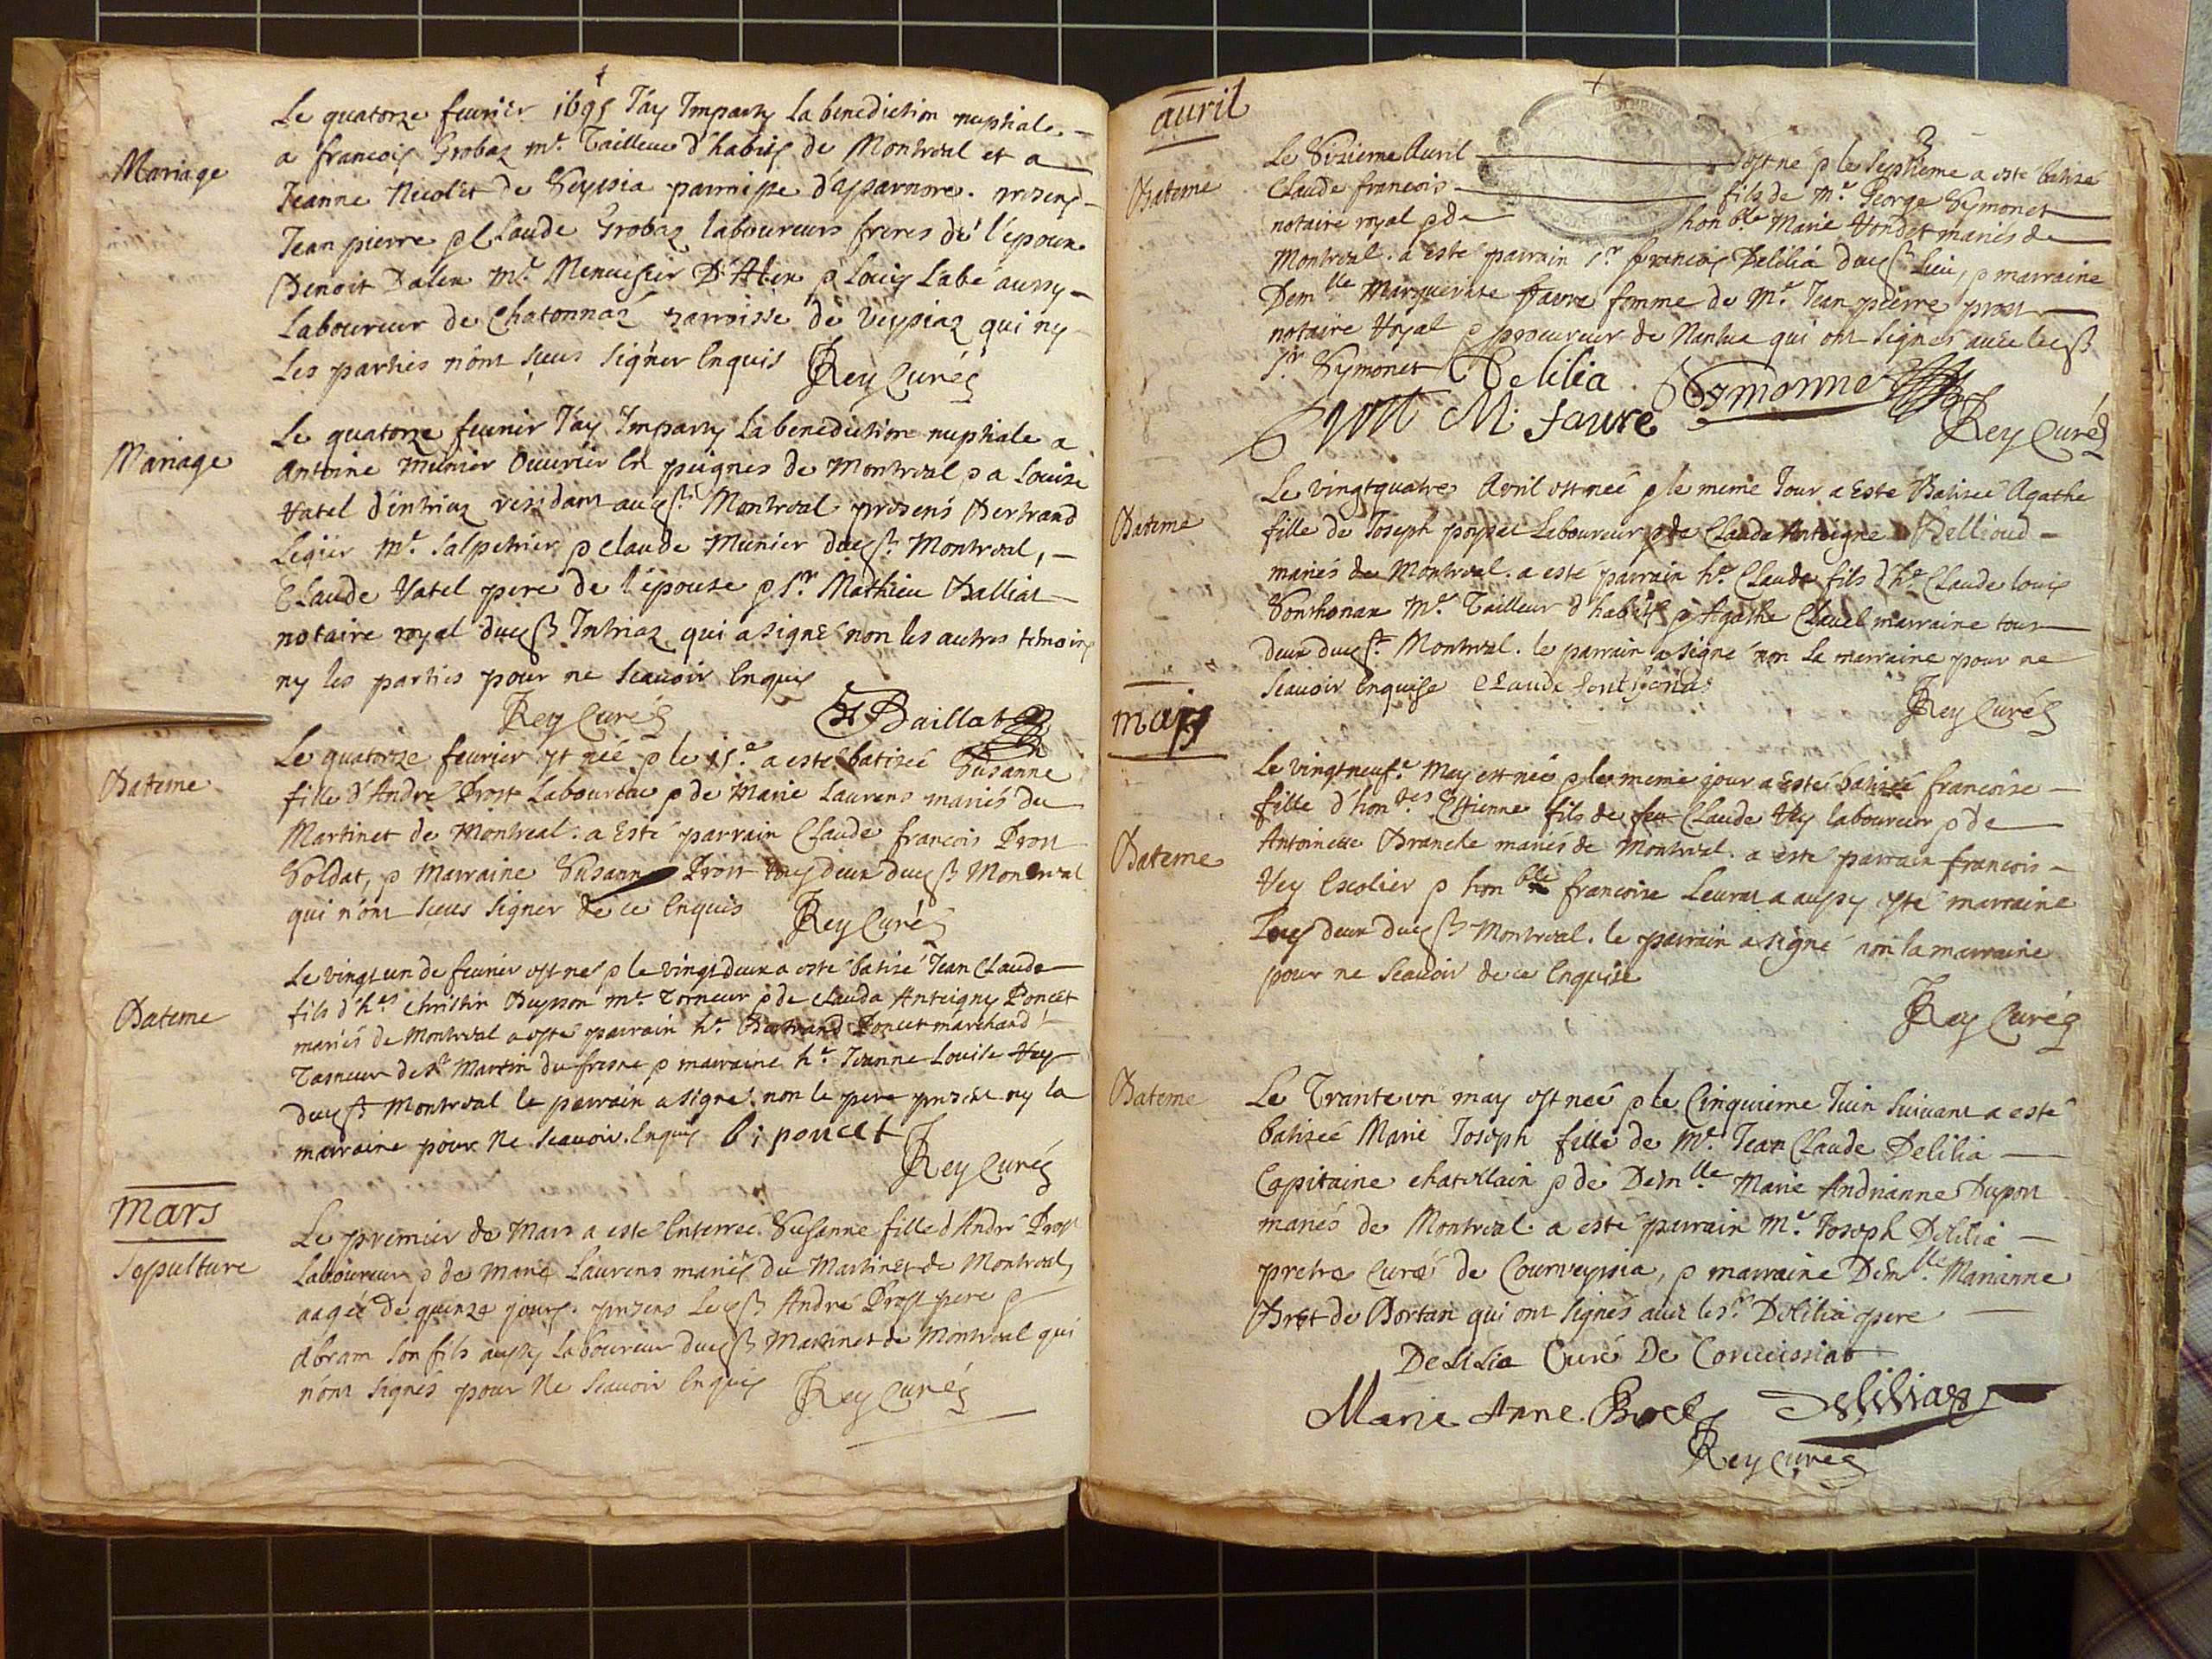 Le quatorze feurier 1695 J'ay Imparty la benediction nuptiale
Mariage
a francois Grobaz me. Tailleur d'habits de Montreal et a
Jeanne Nicolet de Veyssia parroisse d'
Jean pierre p Claude Grobaz laboureurs freres de l'epoux
Benoit me. Menuisier p Louis Labe aussy
Laboureur de Chatonnaz parroisse de Veyssiaz qui ny
Les parties n'ont sceus signer Enquis Rey Curé
Le quatorze feurier J'ay Imparty La benediction nuptiale a
Mariage
Antoine Munier Ouurier En peignes de Montreal p a Louise
Vatel d'intriaz residant Montreal presens Bertrand
Legier me. Salpetrier p claude Munier Montreal,
Claude Vatel pere de l'epouse p Sr. Mathieu Balliat
notaire royal Intriaz qui a signé non les autres temoins
ny les parties pour ne sçauoir Enquis
Rey Curé Baillat
Le quatorze feurier est née p le 15e. a esté batizée Susanne
Bateme
fille d'André Prost Laboureur p de Marie Laurens mariés du
Martinet de Montreal. a Esté parrain Claude francois Prost
Soldat, p Marraine Susanne Prost tous deux Montreal
qui n'ont sceus signer de ce Enquis Rey Curé
Le vingt un de feurier est né p le vingt deux a esté batisé Jean Claude
Bateme
fils d'h. Christin Buysson me Torneur p de Clauda Antoigny Poncet
mariés de Montreal a esté parrain he. Bertrand Poncet marchand
Tarneur de St Martin du fresne p marraine he. Jeanne Louise Vuy
Montreal le parrain a signé non le pere present ny la
marraine pour Ne sçauoir Enquis B; poncet
Rey Curé
Mars
Le premier de Mars a esté Enterreé Susanne fille d'André Prost
Sepulture
Laboureur p de Marie Laurens mariés du Martinet de Montreal,
aageé de quinze jours. presens André Prost pere p
Abram son fils aussy Laboureur Martinet de Montreal qui
n'ont signés pour Ne Sçauoir Enquis Rey Curé
auril
Le Sixieme Auril est né p le septieme a esté batisé
Bateme
Claude francois fils de me. George Symonet
notaire royal p de honble Marie mariés de
Montreal. a Esté parrain Sr. francois Delilia Lieu, p marraine
Demlle Marguerite Faure femme de Me. Jean pierre prost
notaire Royal p procureur de Nantua qui ont signés auec
Sr Symonet Delilia Symonné
M. faure Rey Curé
Le vingtquatre Avril est neé p le meme Jour a Esté Batizeé Agathe
Bateme
fille de Joseph Laboureur p de Clauda Antoigne Bellioud
mariés de Montreal. a este parrain he. Claude fils d'he Claude louis
Sonthonax me. Tailleur d'habits p Agathe Clauel marraine tous
deux Montreal. le parrain a signé non La marraine pour ne
sçauoir Enquise Claude
Rey Curé
may
Le vingtneufe. May est neé p le meme jour a Esté batizeé francoise
fille d' Estienne fils de feu Claude Vuy laboureur p de
Bateme
Antoinette Branche mariés de Montreal. a esté parrain francois
Vuy Escolier p honble francoise Leurat a aussy esté marraine
Tous deux Montreal. le parrain a signé non la marraine
pour ne Sçauoir de ce Enquise
Rey Curé
Bateme
Le Trante un may est neé p le Cinquieme Juin Suiuant a esté
batizeé Marie Joseph fille de me. Jean Claude Delilia
Capitaine chatellain p de Demlle Marie Andrianne Dupont
mariés de Montreal. a esté parrain me. Joseph Delilia
pretre Curé de Courveyssia, p marraine Demlle. Marianne
de Dortan qui ont signés auec le Sr. Delilia pere
DeliLia Curé De Corueissiat
Marie Anne Delilia
Rey Curé